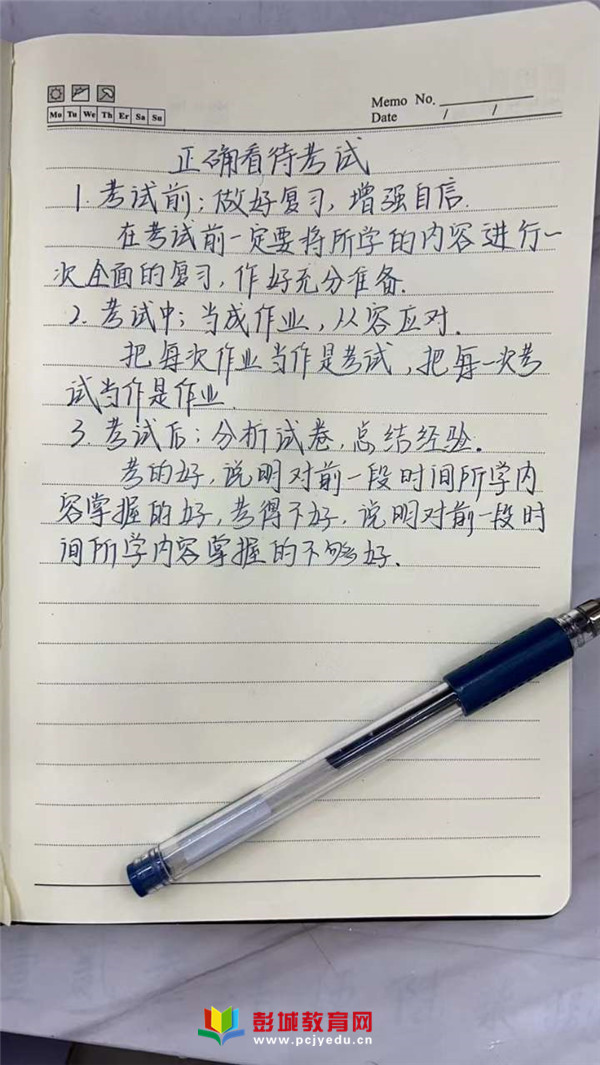 Memo No.
Mo Tu We Th Er Sa Su
Date / /
正确看待考试
1. 考试前；做好复习，增强自信.
在考试前一定要将所学的内容进行一
次全面的复习，作好充分准备.
2. 考试中；当成作业，从容应对.
把每次作业当作是考试，把每一次考
试当作是作业.
3. 考试后；分析试卷，总结经验.
考的好，说明对前一段时间所学内
容掌握的好，考得不好，说明对前一段时
间所学内容掌握的不够好.
彭城教育网
www.pcjyedu.cn